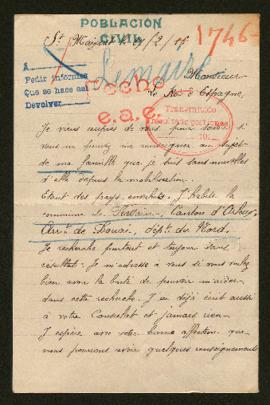 POBLACION
CIVIL
St Maixent
1746
A
Pedir informes
Que se hace así
Devolver.
Lemaire
Fecho
e.a.c.
Monsieur
le Roi d'Espagne,
Je vous écris pour savoir si
vous me renseigner au sujet
de ma famille que je suis sans nouvelles
d'elle depuis la mobilisation.
Etant des pays envahis. J'habite la
commune de Canton d'
Arr. de Douai, dépt du Nord.
Je recherche partout et toujours sans
résultat. Je m'adresse à vous si vous voulez
bien avoir la bonté de pouvoir m'aider
dans cette recherche. J'ai déjà écrit aussi
à votre Consulat et jamais rien.
J'espère avec votre bonne affection que
vous pourrez avoir quelques renseignements